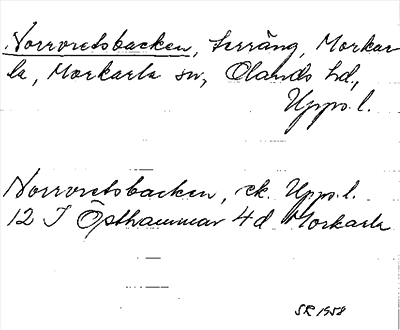 Norrvretsbacken, terräng, Morkar-
la, Morkarla sn, Olands hd,
Upps. l.
Norrvretsbacken, ek. Upps. l.
12 I Östhammar 4d Morkarla
SR 1958